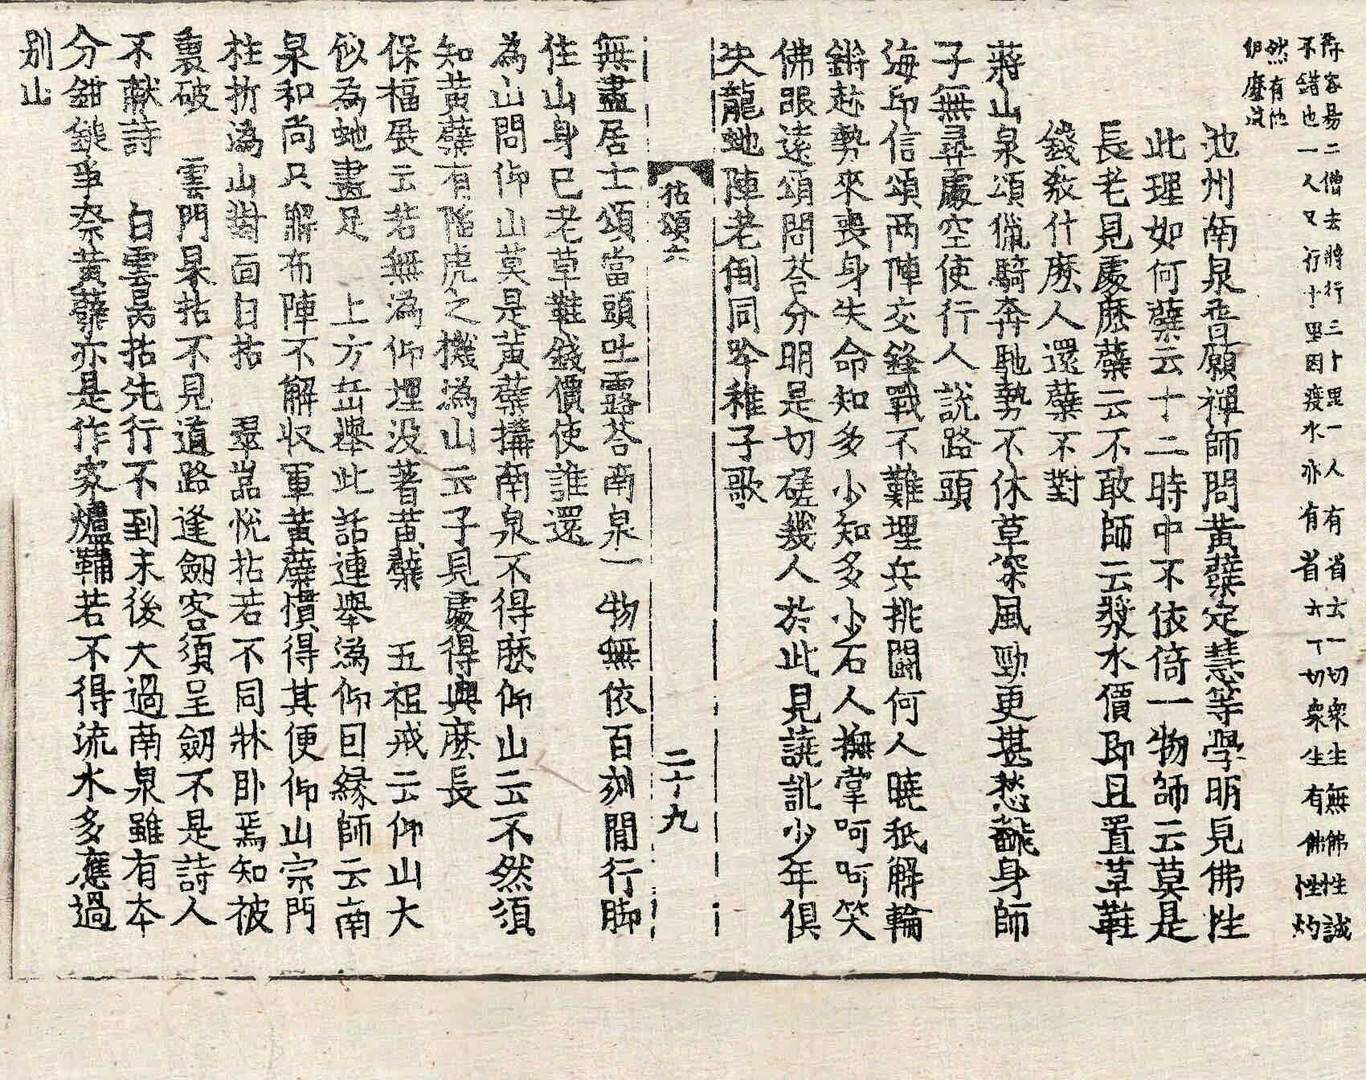 容易二僧去將行三十里一人有省云一切衆生無佛性誠
不錯也一人又行十里因渡水亦有省云一切衆生有佛性灼
然有他
池州南泉普願禪師問黃蘗定慧等學明見佛性
此理如何蘗云十二時中不依倚一物師云莫是
長老見處麽蘗云不敢師云漿水價即且置草鞋
錢敎什麽人還蘗不對
蔣山泉頌獵騎奔馳勢不休草深風勁更堪愁齖身師
子無尋處空使行人說路頭
海印信頌兩陣交鋒戰不難埋兵挑鬪何人曉秖解輪
鏘趂勢來喪身失命知多少知多少石人撫掌呵呵笑
佛眼遠頌問荅分明是切磋幾人於此見譊訛少年俱
決龍虵陣老倒同吟稚子歌
拈頌六 二十九
無盡居士頌當頭吐露荅南泉一物無依百刼閒行脚
住山身已老草鞋錢價使誰還
潙山問仰山莫是黃蘗搆南泉不得麽仰山云不然須
知黃蘗有陷虎之機潙山云子見處得與麽長
保福展云若無潙仰埋沒著黃蘗 五祖戒云仰山大
似爲虵畫足 上方岳擧此話連擧潙仰因緣師云南
泉和尚只解布陣不解収軍黃蘗慣得其便仰山宗門
柱折潙山對面白拈 翠嵓悅拈若不同牀臥焉知被
裏破 雲門杲拈不見道路逢劒客須呈劒不是詩人
不獻詩 白雲昺拈先行不到末後大過南泉雖有本
分鉗鎚爭奈黃蘗亦是作家爐鞴若不得流水多應過
别山